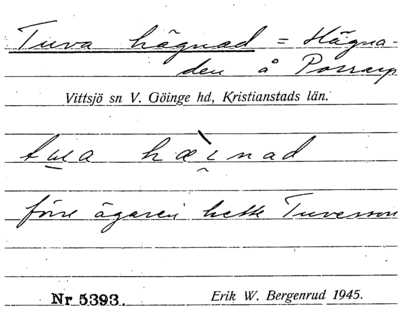 Tuva hägnad = Hägna-
den å Porrarp
Vittsjö sn V. Göinge hd, Kristianstads län.
tua hæi̯nad
förre ägaren hette Tuvesson
Nr 5393. Erik W. Bergenrud 1945.